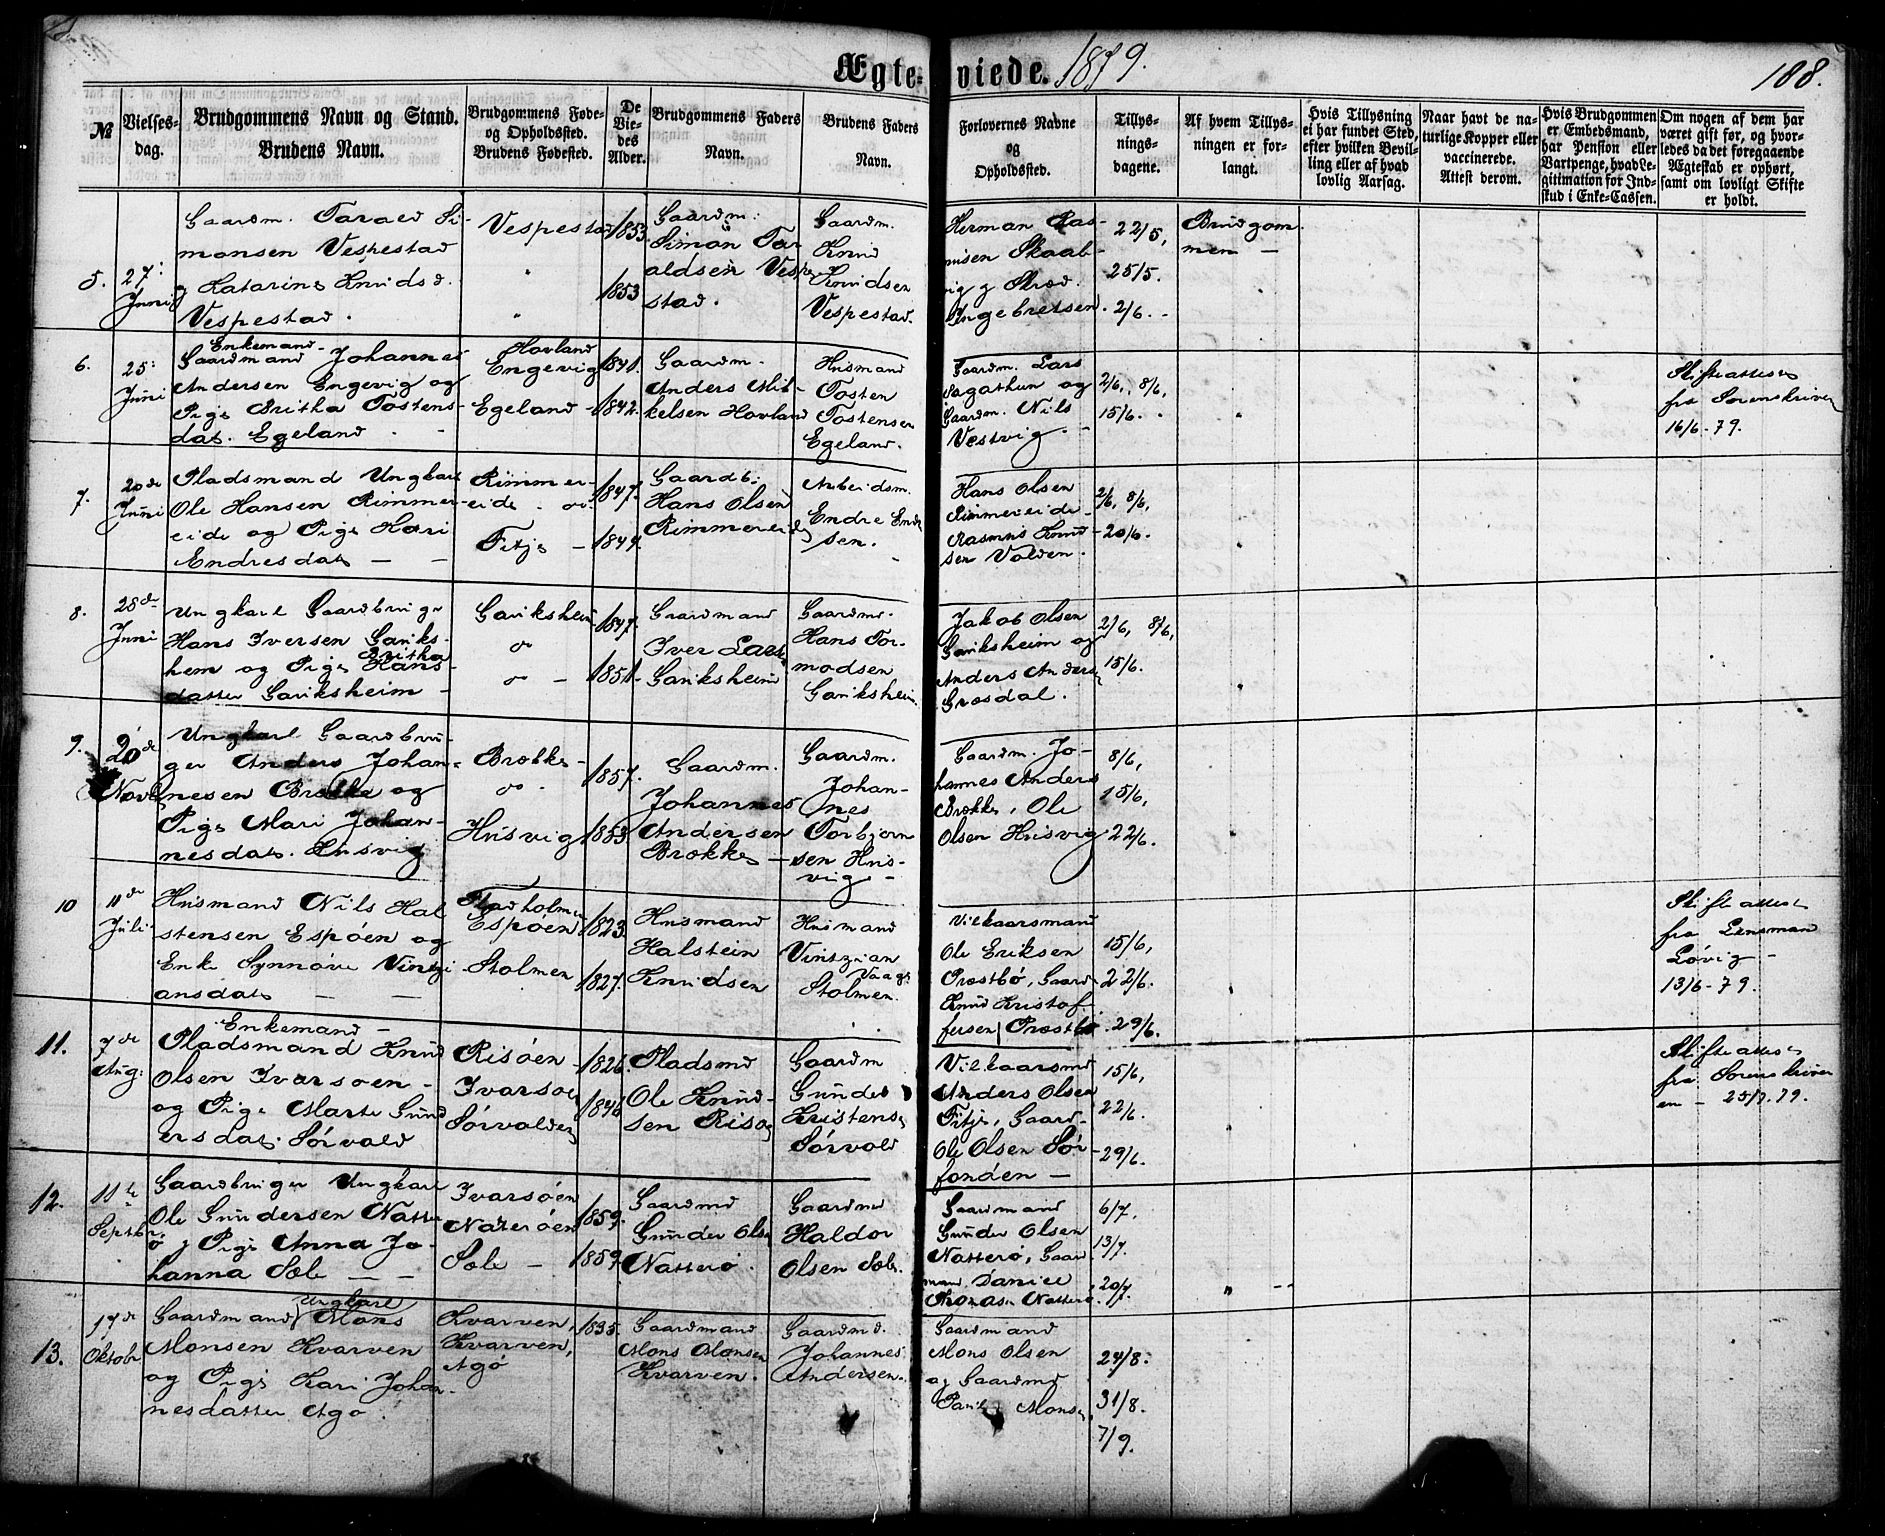 Ægte-viede. 1879.
188.
№
Vielses-dag.
Brudgommens Navn og Stand.
Brudens Navn.
Brudgommens Føde- og Opholdssted.
Brudens Fødested.
De Vie-des Alder.
Brudgommens Faders Navn.
Brudens Faders Navn.
Forlovernes Navne og Opholdssted.
Tillys-nings-dagene.
Af hvem Tillys-ningen er for-langt.
Hvis Tillysning ei har fundet Sted, efter hvilken Bevil-ling eller af hvad lovlig Aarsag.
Naar havt de na-turlige Kopper eller vaccinerede. Attest derom.
Hvis Brudgommen er Embedsmand, har Pension eller Vartpenge, hvad Le-gitimation for Ind-skud i Enke-Cassen.
Om nogen af dem har været gift før, og hvor-ledes da det foregaaende Ægteskab er ophørt, samt om lovligt Skifte er holdt.
5.
27:
Juni
Gaardm. Tarald Si-
monsen Vespestad
og Katarine Knudsd.
Vespestad.
Vespestad
1853
1853
Gaardm.
Simon Tar
aldsen Vespe
stad.
Gaardm.
Knud
Knudsen
Vespestad.
Herman Ras-
musen Skaab
vig
Ingebretsen.
22/5,
25/5.
2/6.
Brudgom
men
6.
25:
Juni
Enkemand
Gaardmand Johannes
Andersen Engevig og
Pige Britha Tostens-
dat. Egeland
Hovland
Engevig
Egeland
1841.
1842.
Gaardm.
Anders Mik-
kelsen Hovland
Husmand
Tosten
Tostensen
Egeland.
Gaardm. Lars
Søgathun og
Gaardm. Nils
Vestvig.
2/6, 8/6,
15/6.
Skifteattest
fra Sorenskriver
16/6-79.
7.
20de
Juni
Pladsmand Ungkarl
Ole Hansen Rimmer-
eide og Pige Kari
Endresdat
Rimmer-
eide
Fitje
1847.
1849.
Gaardb.
Hans Olsen
Rimmereide
Arbeidsm.
Endre End
sen.
Hans Olsen
Rimmereide
Rasmus Knud-
sen Valden.
2/6, 8/6,
20/6.
8.
28de
Juni
Ungkarl Gaardbruger
Hans Iversen Gauks-
hem og Pige Britha Hans-
datter Gauksheim
Gauksheim
do
do
1847.
1851.
Graardmand
Iver Lars
Gauksheim
Gaardm.
Hans Tor-
modsen
Gauksheim
Jakob Olsen
Gauksheim og
Anders Anders
Grøsdal.
2/6, 8/6,
15/6.
9.
20de
Novb
Ungkarl Gaardbru-
ger Anders Johan-
nesen Brække og
Pige Mari Johan-
nesdat. Husvig
Brække
do
Husvig
1857.
1853.
Gaardm.
Johannes
Andersen
Brække
Gaardm.
Johan-
nes
Torbjørn
sen Hus-
vig
Gaardm. Jo-
hannes Anders
Brække, Ole
Olsen Husvig
8/6,
15/6,
22/6.
10
11de
Juli
Husmand Nils Hal
stensen Espøen og
Enke Synnøve Vintzi
ansdat
Fladholmen
Espøen
Stolmen
1823.
1827.
Husmand
Halstein
Knudsen
Husmand
Vintzian
Vaage
Stolmen.
Vilkaarsmand
Ole Eriksen
Prestbø, Gaard
Knud Kristof
fersen Præstbø
15/6,
22/6.
29/6.
Skifteattest
fra Lensman
Løvig
13/6-79.
11.
7de
Aug:
Enkemand
Pladsmand Knud
Olsen Ivarsøen
og Pige Marte Gund
ersdat. Sørvald
Risøen
Ivarsøen
Sørvalden
1826.
1846
Pladsmd
Ole Knud-
sen Risø
Gaardm
Gunder
Kristens
Sørvold
Vilkaarsmd
Anders Olsen
Fitje, Gaard-
Ole Olsen Sør-
fonden
15/6,
22/6.
29/6.
Skifteattest
fra Sorenskriver
en - 25/7.79.
12.
11te
Septbr.
Gaardbruger Ungkarl
Ole Gundersen Natter
ø og Pige Anna Jo-
hanna Sæle
Ivarsøen
Natterøen
Sæle
1859.
1859
Gaardmd
Gunder Olse
Natterø.
Gaardm
Haldor
Olsen Sæle.
Gaardmand
Gunder Olsen
Natterø, Gaar
mand Daniel
Thomasn Natterø.
6/7.
13/7.
20/7.
13.
17de
Oktobr
Gaardmand Ungkarl Mons
Monsen Kvarven
og Pige Kari Johan-
nesdatter Agø.
Kvarven,
Kvarven,
Agø
1835.
Gaardmand
Mons Monsen
Kvarven.
Gaardmd.
Johannes
Andersen.
Gaardmand
Mons Olsen
og Gaardmd
Paul Mons
24/8.
31/8.
7/9.